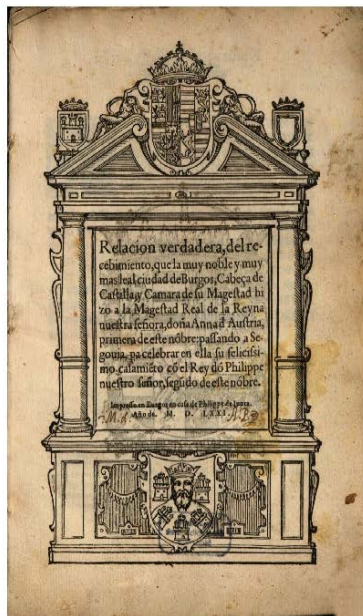 Relacion verdadera, del re-
cebimiento, que la muy noble y muy
mas leal ciudad de Burgos, Cabeça de
Castilla, y Camara de su Magestad hi
zo a la Magestad Real de la Reyna
nuestra señora, doña Anna d Austria,
primera de este nõbre: passando a Se-
gouia, pa celebrar en ella su felicissi-
mo casamiẽto cõ el Rey dõ Philippe
nuestro señor, segũdo de este nõbre.
Impresso en Burgos en casa de Philippe de Iunta.
Año de. M. D. LXXI.